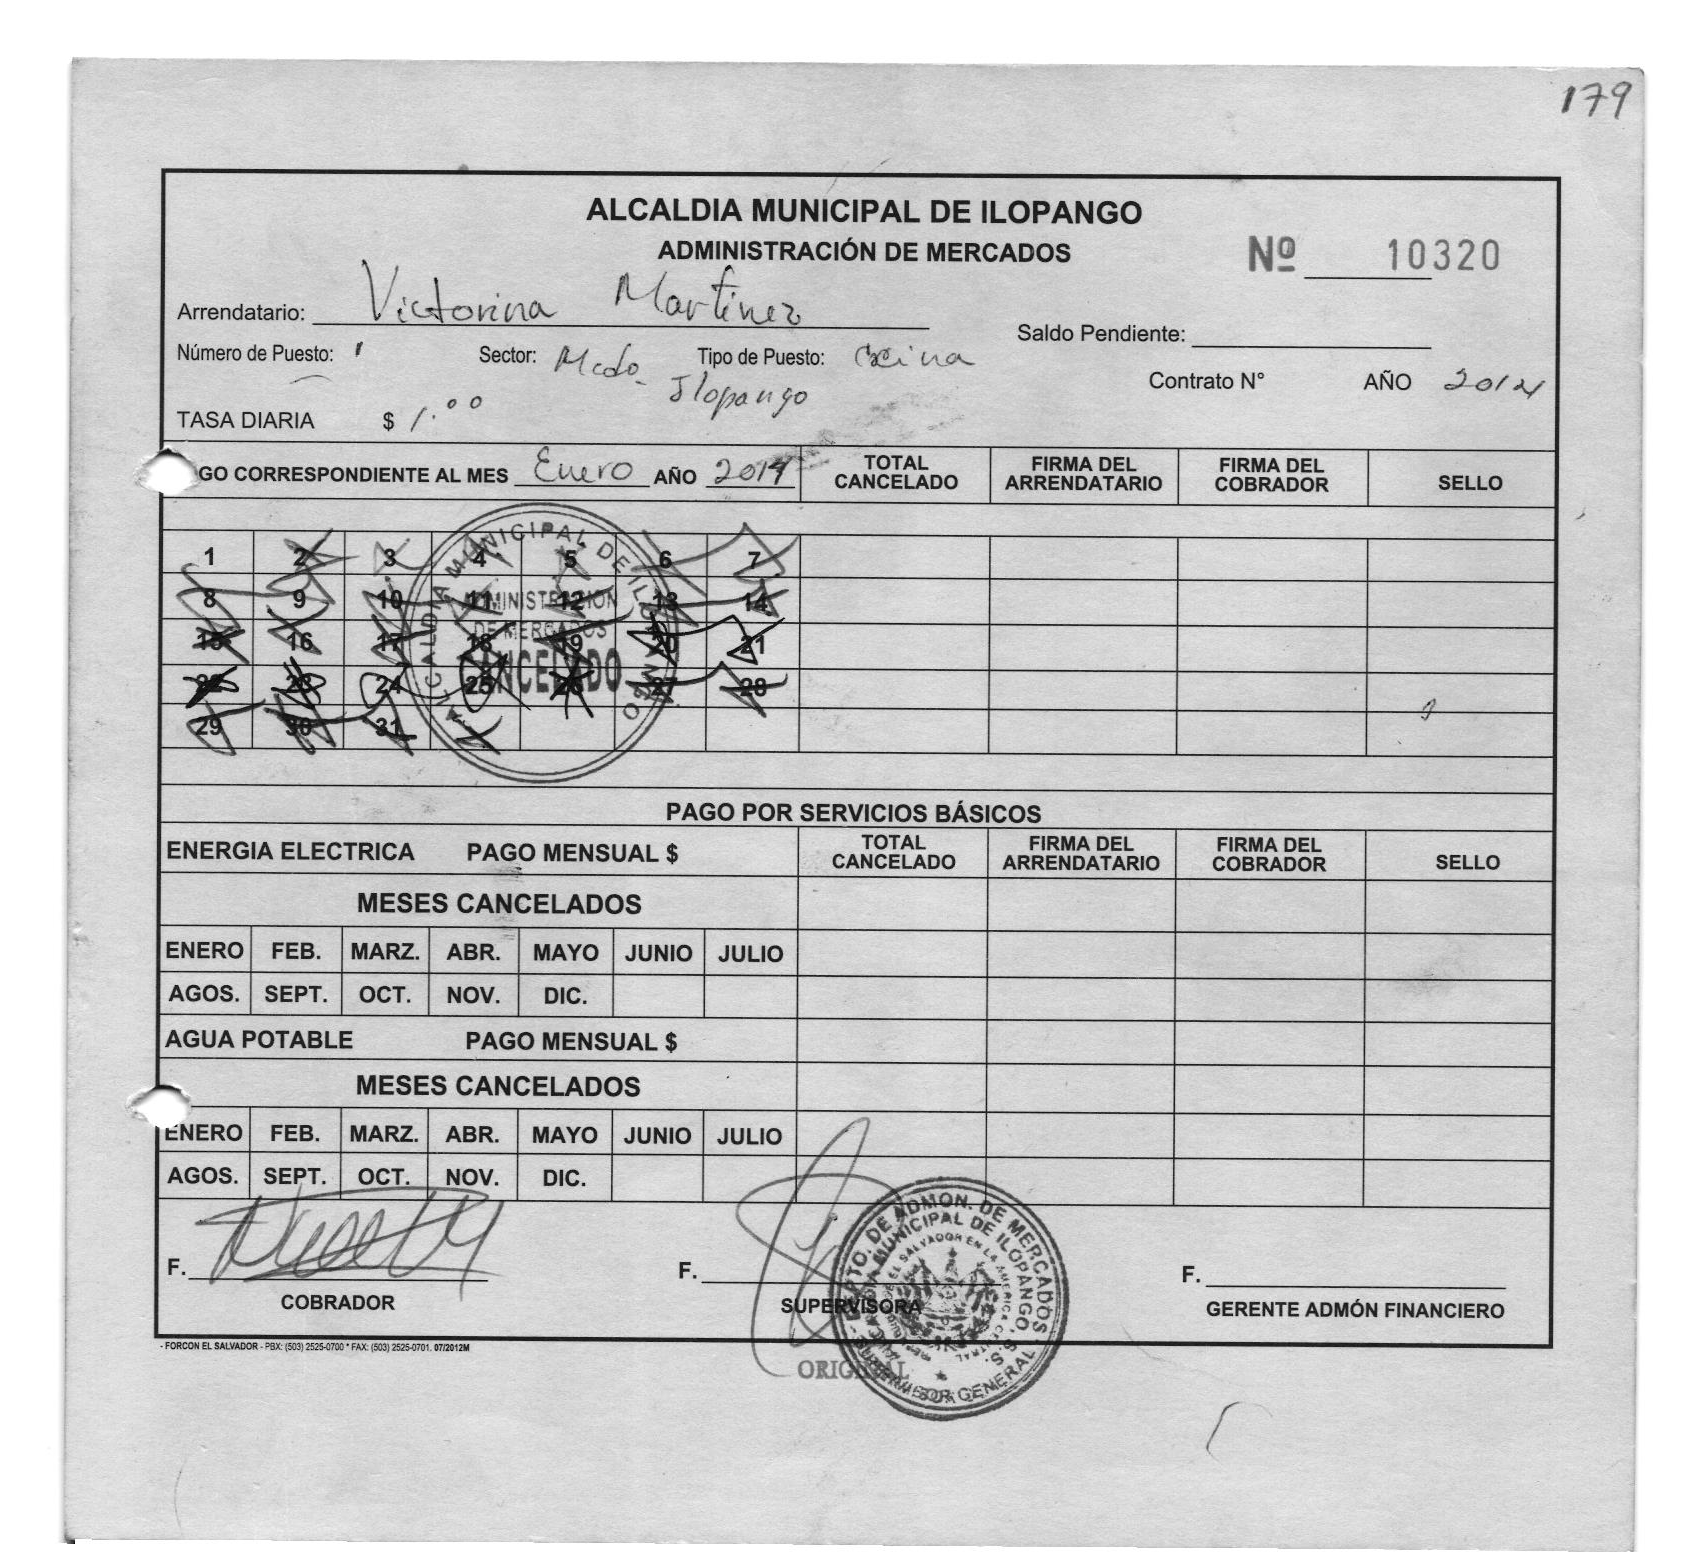 179
ALCALDIA MUNICIPAL DE ILOPANGO
ADMINISTRACIÓN DE MERCADOS
Nº 10320
Arrendatario: Victorina Martinez
Saldo Pendiente:
Número de Puesto: 1 Sector: Mcdo. Ilopango Tipo de Puesto: Cocina
Contrato N° AÑO 2014
TASA DIARIA $ 1.00
GO CORRESPONDIENTE AL MES Enero AÑO 2014 TOTAL CANCELADO FIRMA DEL ARRENDATARIO FIRMA DEL COBRADOR SELLO
1 2 3 4 5 6 7
8 9 10 11 12 13 14
15 16 17 18 19 20 21
22 23 24 25 26 27 28
29 30 31
ALCALDIA MUNICIPAL DE ILOPANGO
ADMINISTRACION
DE MERCADOS
CANCELADO
PAGO POR SERVICIOS BÁSICOS
ENERGIA ELECTRICA PAGO MENSUAL $ TOTAL CANCELADO FIRMA DEL ARRENDATARIO FIRMA DEL COBRADOR SELLO
MESES CANCELADOS
ENERO FEB. MARZ. ABR. MAYO JUNIO JULIO
AGOS. SEPT. OCT. NOV. DIC.
AGUA POTABLE PAGO MENSUAL $
MESES CANCELADOS
ENERO FEB. MARZ. ABR. MAYO JUNIO JULIO
AGOS. SEPT. OCT. NOV. DIC.
F. F. F.
COBRADOR SUPERVISORA GERENTE ADMÓN FINANCIERO
DEPTO. DE ADMON. DE MERCADOS
MUNICIPAL DE ILOPANGO
EL SALVADOR EN LA AMERICA CENTRAL
S.S.
SUPERVISOR GENERAL
- FORCON EL SALVADOR - PBX: (503) 2525-0700 * FAX: (503) 2525-0701. 07/2012M
ORIGINAL